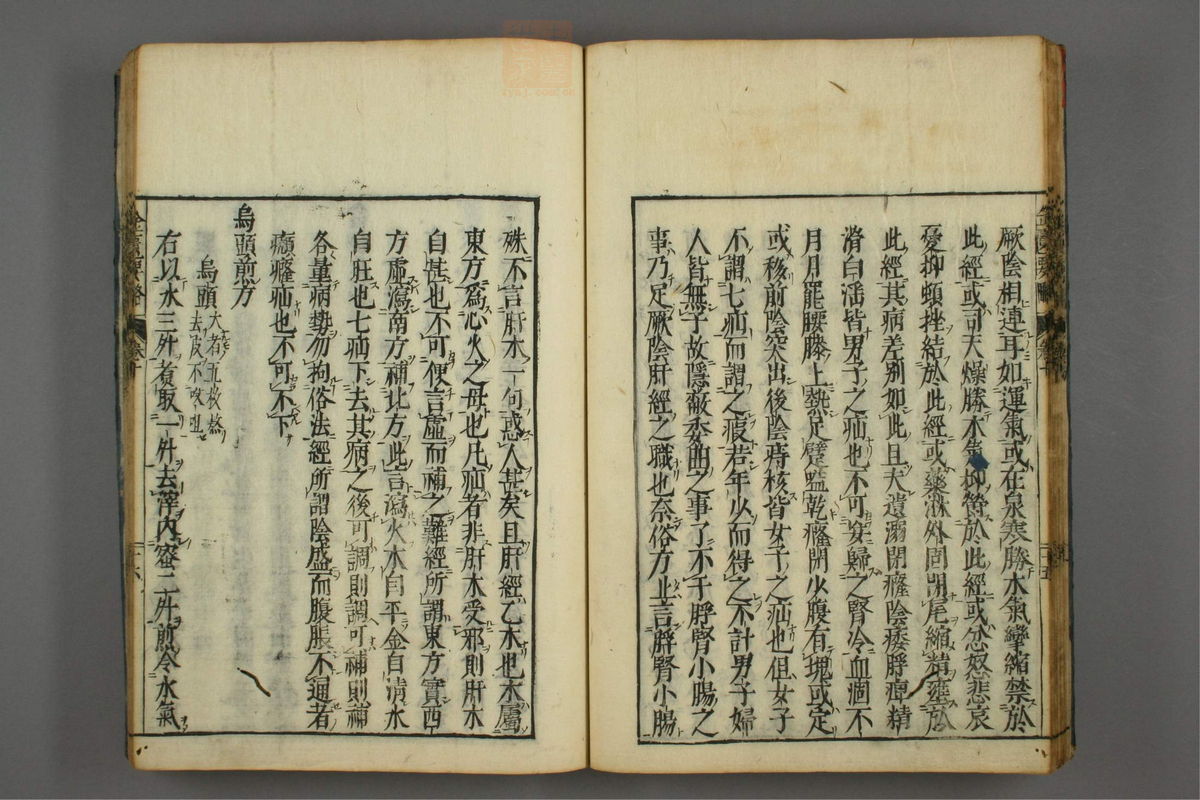 厥陰相連耳如運氣或在泉寒勝水氣攣縮禁於
此經或司天燥勝木氣抑鬱於此經或忿怒悲哀
憂抑頓挫結於此經或藥淋外固閉尾縮精壅於
此經其病差別如此且夫遺溺閉癃陰痿脬痺精
滑白淫皆男子之疝也不可妄歸之腎冷血涸不
月月罷腰膝上熱足躄嗌乾癃閉少腹有塊或定
或移前陰突出後陰痔核皆女子之疝也但女子
不謂七疝而謂之瘕若年少而得之不計男子婦
人皆無子故隱蔽委曲之事了不干脬腎小腸之
事乃足厥陰肝經之職也奈俗方止言脬腎小腸
殊不言肝木一句惑人甚矣且肝經乙木也木屬
東方爲心火之母也凡疝者非肝木受邪則肝木
自甚也不可便言虛而補之難經所謂東方實西
方虛瀉南方補北方此言瀉火木自平金自淸水
自旺也七疝下去其病之後可調則調可補則補
各量病勢勿拘俗法經所謂陰盛而腹脹不通者
㿗癃疝也不可不下
烏頭煎方
烏頭大者五枚熬
去皮不㕮咀
右以水三升煑取一升去滓内蜜二升煎令水氣
金匱要略